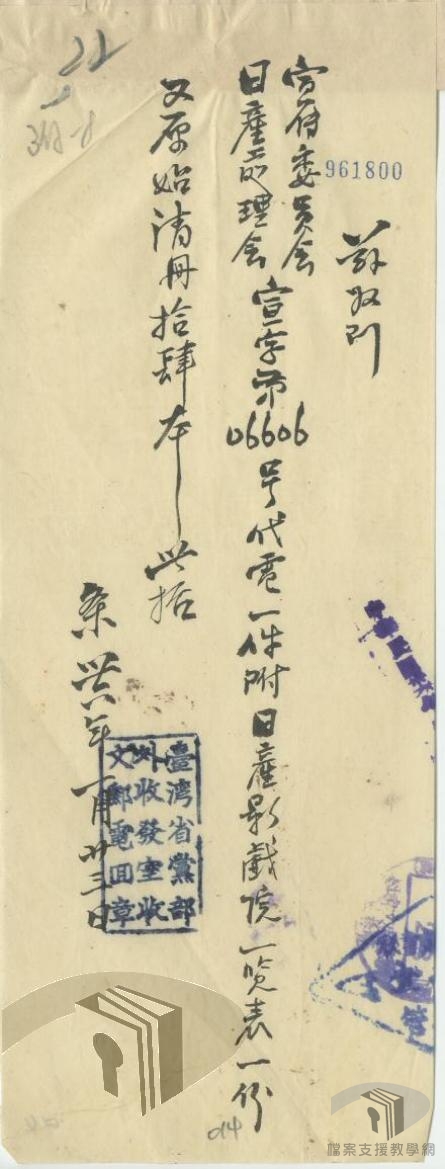 茲收到
961800
官府委員会
日產處理会
宣字第06606号代電一件附日產影戲院一覽表一份
又原始清冊拾肆本
此据
卅六年一月廿三日
臺灣省黨部
外收發室收
文郵電回章
014
檔案支援教學網